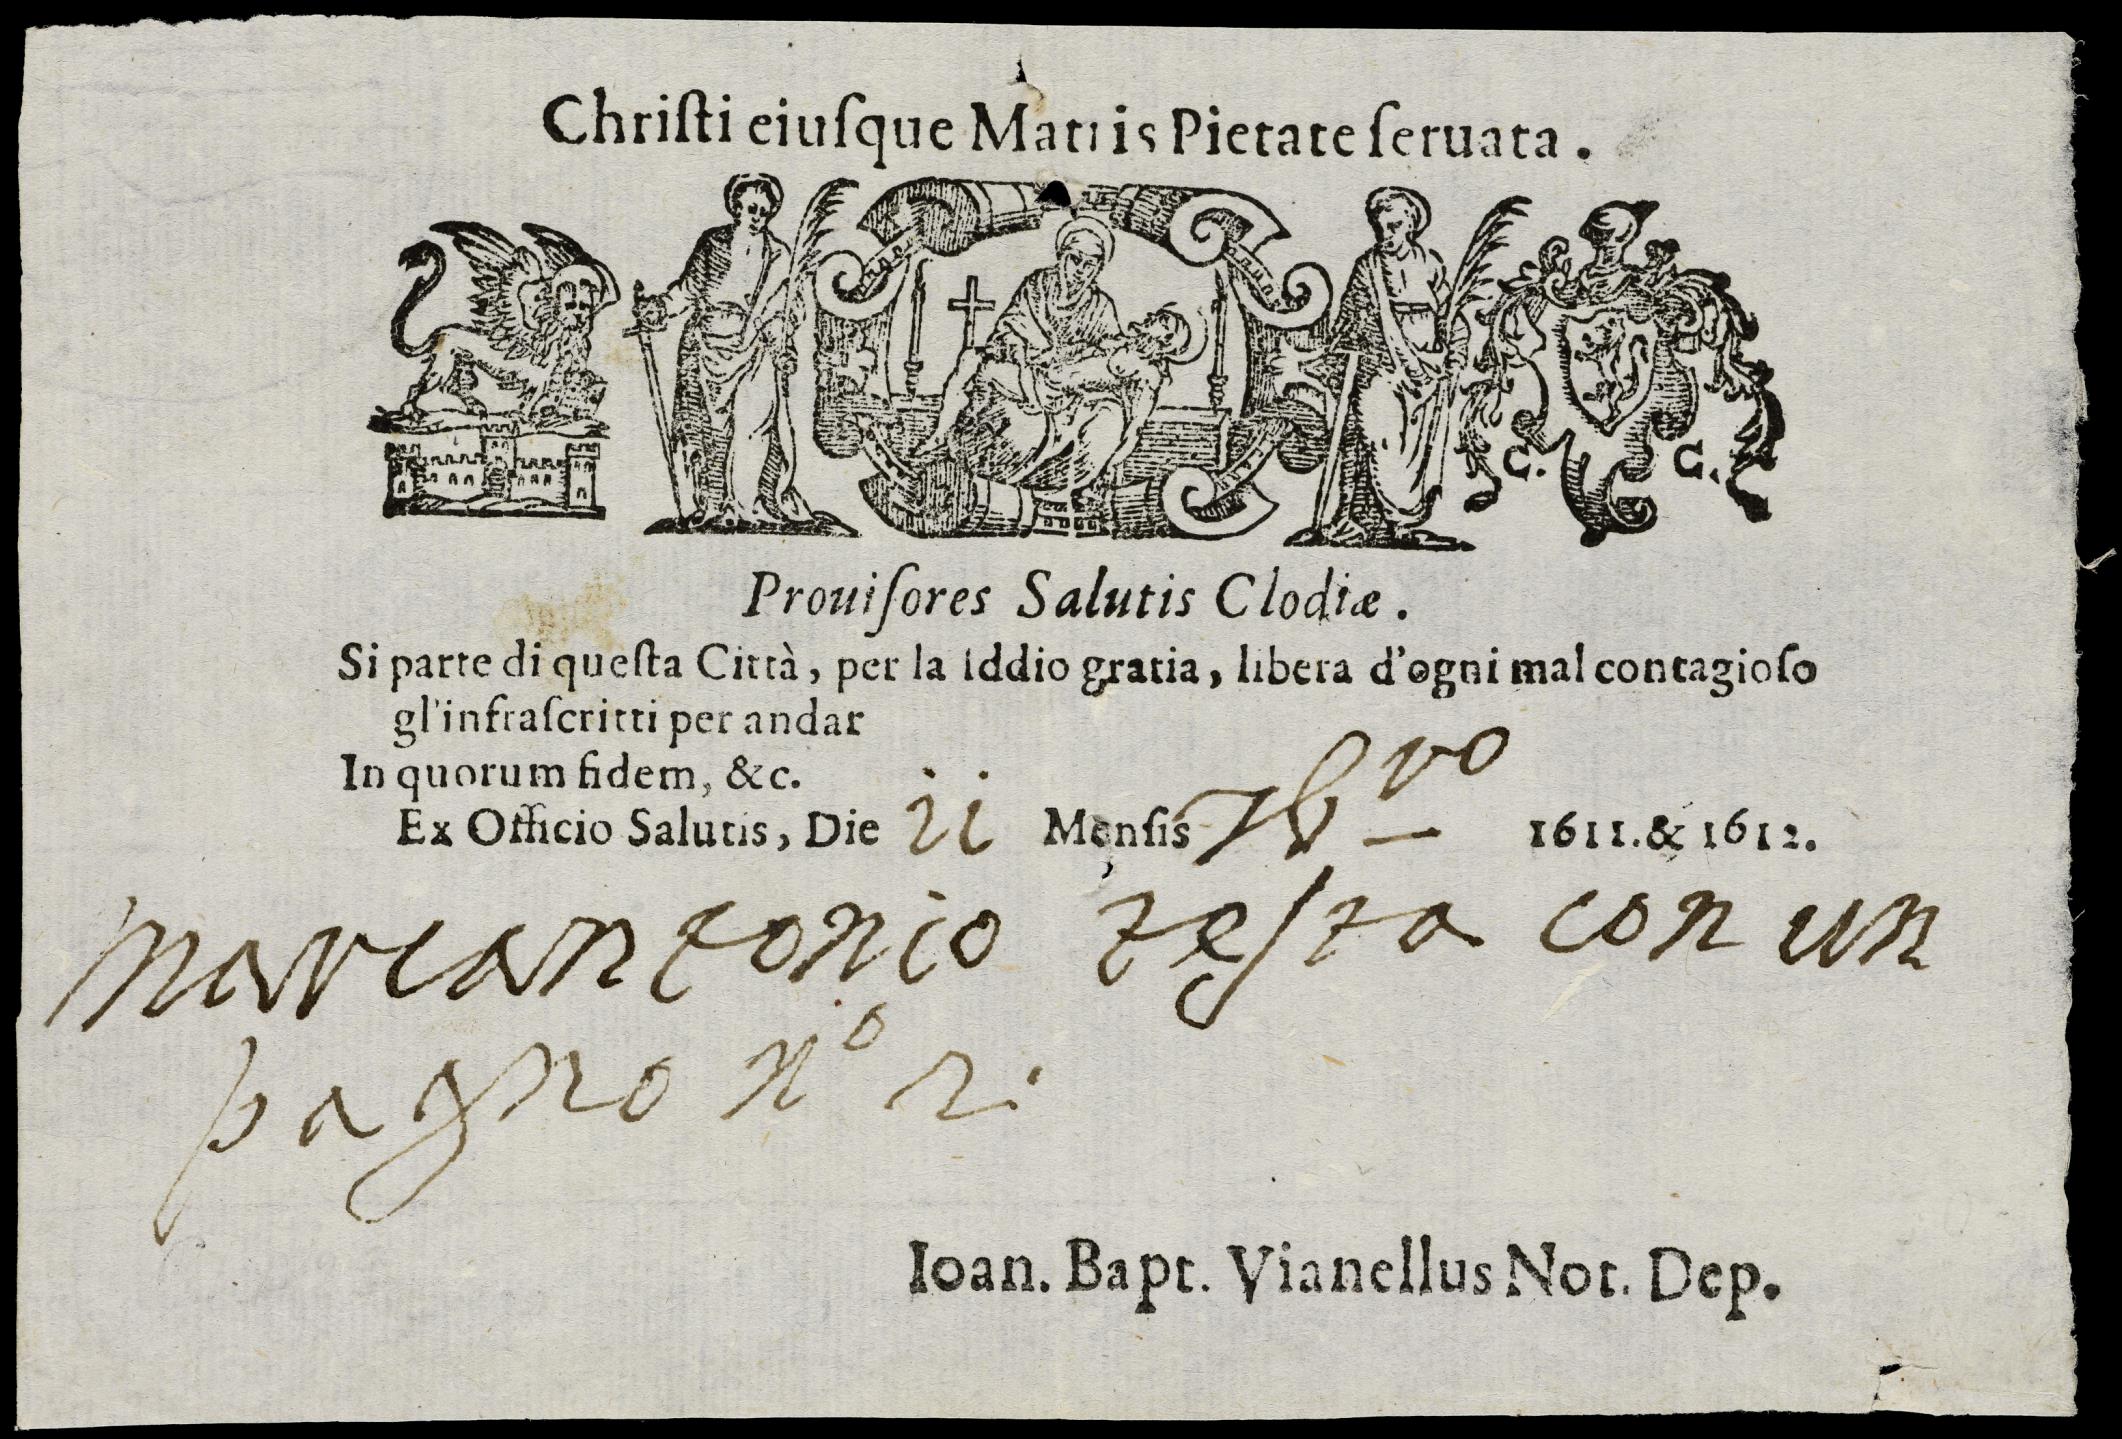 Chriſti eiuſque Matris Pietate ſeruata.
C. C.
Prouiſores Salutis Clodiæ.
Si parte di queſta Città, per la Iddio gratia, libera d'ogni mal contagioſo
gl'infraſcritti per andar
In quorum fidem, &c.
Ex Officio Salutis, Die ii Menſis 7b ro 1611. & 1612.
marcantonio teſta con un
pagno n.o
Ioan. Bapt. Vianellus Not. Dep.